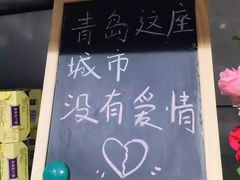 青岛这座
城市
没有爱情